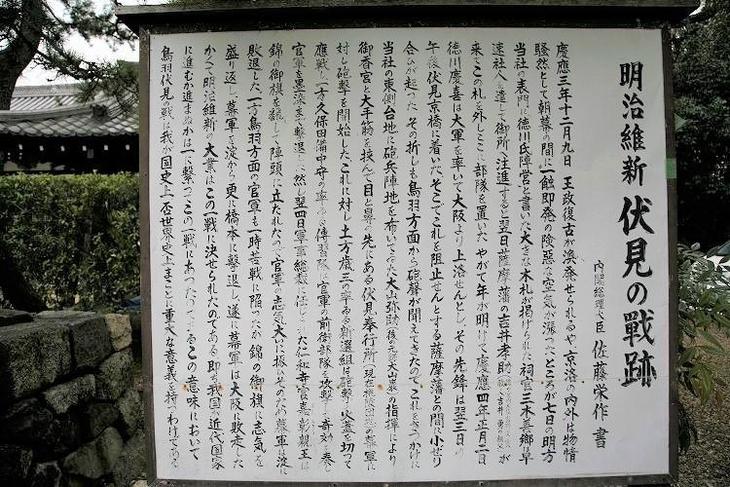 明治維新 伏見の戦跡
内閣総理大臣 佐藤栄作 書
慶應三年十二月九日 王政復古が渙発せられるや京洛の内外は物情
騒然として朝幕の間に一触即発の険悪な空気が漲つた ところが七日の明方
当社の表門に徳川氏陣営と書いた大きな木札が掲げられた 祠官三木善郷は早
速社人を遣して御所に注進すると翌日薩摩藩の吉井孝助が
来てこの札を外しここに部隊を置いた やがて年が明けて慶應四年正月二日
徳川慶喜は大軍を率いて大阪より上洛せんとし その先鋒は翌三日の
午後伏見京橋に着いた そこでこれを阻止せんとする薩摩藩との間に小ぜり
合ひが起つた その折しも鳥羽方面から砲声が聞えてきたのでこれをきつかけに
当社の東側台地に砲兵陣地を布いてゐた大山弥助の指揮により
御香宮と大手筋を挟んで目と鼻の先にある伏見奉行所の幕軍に
対し砲撃を開始した これに対し土方歳三の率ゐる新選組は砲撃の火蓋を切つて
應戦し 一方久保田備中守の率ゐる傳習隊は官軍の前衛部隊を攻撃して奇効を奏し
官軍を墨染まで撃退した 然し翌四日軍事総裁に任じられた仁和寺宮嘉彰親王は
錦の御旗を飜して陣頭に立たれたので官軍の志気大いに振いそのため幕軍は淀に
敗退した 一方鳥羽方面の官軍も一時苦戦に陥つたが錦の御旗に志気を
盛り返し幕軍を淀から更に橋本に撃退し遂に幕軍は大阪に敗走した
かくて明治維新の大業はこの一戦に決せられたのである 即ち我国が近代国家
に進むか進まぬかは一に繋つてこの一戦にあつたのである この意味において
鳥羽伏見の戦は我が国史上否世界史上まことに重大な意義を持つわけである